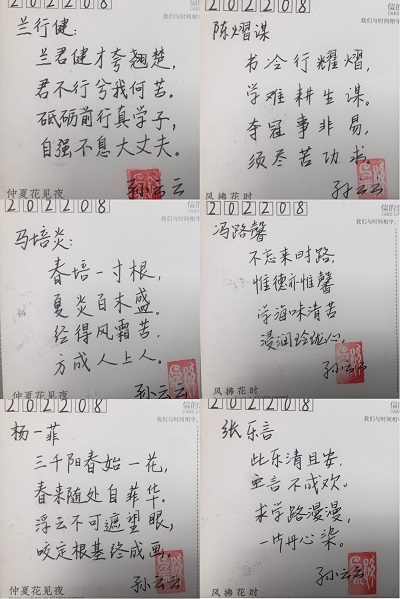 202208
我们与时间相守
兰行健:
兰君健才夸翘楚,
君不行兮我何苦。
砥砺前行真学子,
自强不息大丈夫。
孙云云
仲夏花见夜
202208
我们与时间相守
陈熠谋
书冷行耀熠,
学难耕生谋。
夺冠事非易,
须尽苦功求。
孙云云
风拂花时
202208
我们与时间相守
马培炎:
春培一寸根,
夏炎百木盛。
经得风霜苦,
方成人上人。
孙云云
仲夏花见夜
202208
我们与时间相守
冯路馨
不忘来时路,
惟德亦惟馨
学海味清苦
浸润玲珑心。
孙云云
风拂花时
202208
我们与时间相守
杨一菲
三千阳春始一花,
春来随处自菲华。
浮云不可遮望眼,
咬定根基终成画。
孙云云
仲夏花见夜
202208
我们与时间相守
张乐言
此乐清且安,
无言不成欢。
求学路漫漫,
一片丹心染。
孙云云
风拂花时